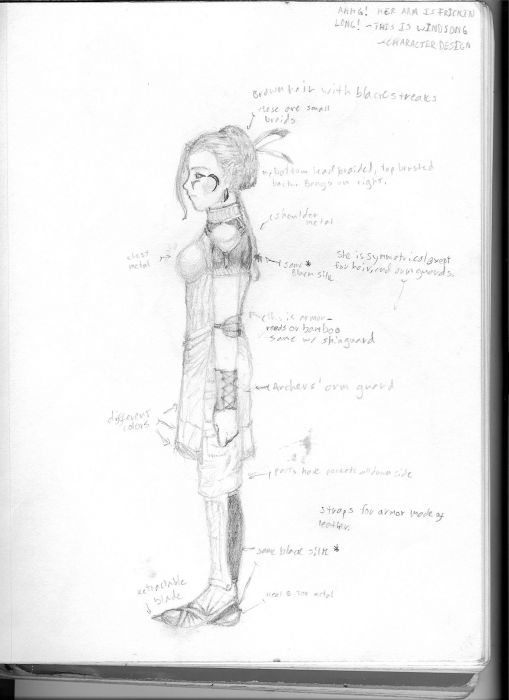 AHHG! HER ARM IS FRICKIN
LONG! ~THIS IS WINDSONG
~CHARACTER DESIGN
Brown hair with black streaks
these are small
braids.
bottom head braided, top twisted
back. Bangs on right.
shoulder
metal
chest
metal
same *
Black silk
She is symmetrical except
for hair, and arm guards.
this is armor-
reeds or bamboo
same w/ shinguard
Archers' arm guard
different
colors
pants have pockets all down side
straps for armor made of
leather.
same black silk *
retractable
blade
heel & toe metal